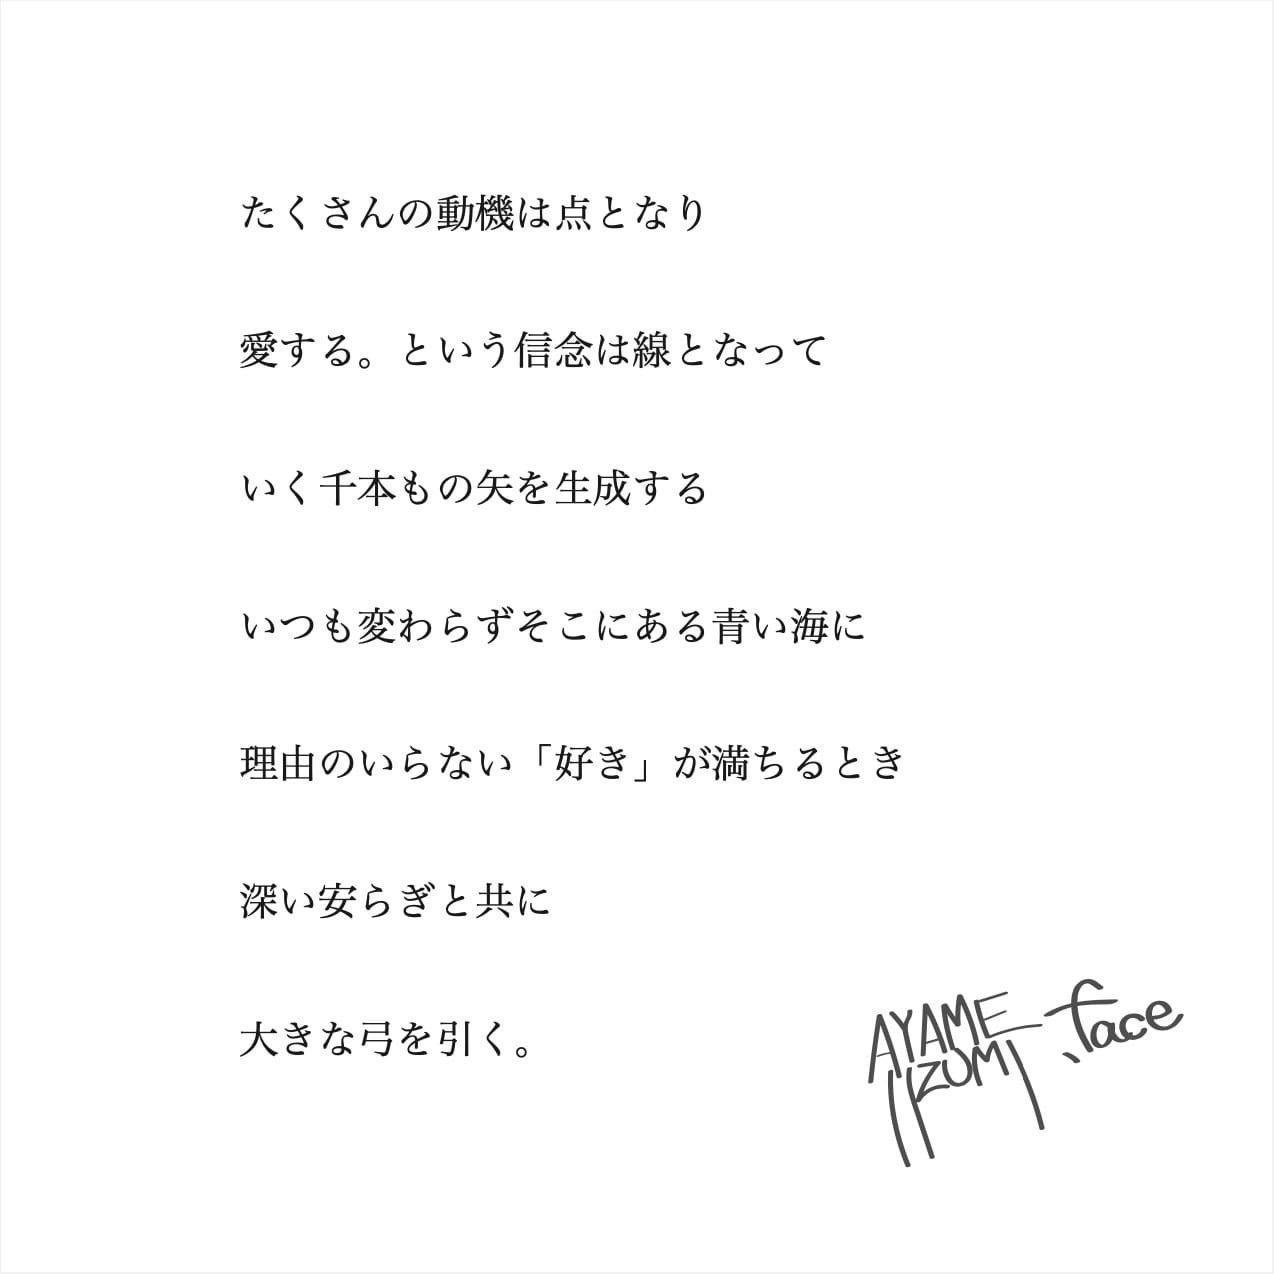 たくさんの動機は点となり
愛する。という信念は線となって
いく千本もの矢を生成する
いつも変わらずそこにある青い海に
理由のいらない「好き」が満ちるとき
深い安らぎと共に
大きな弓を引く。
AYAME
IIZUMI
face